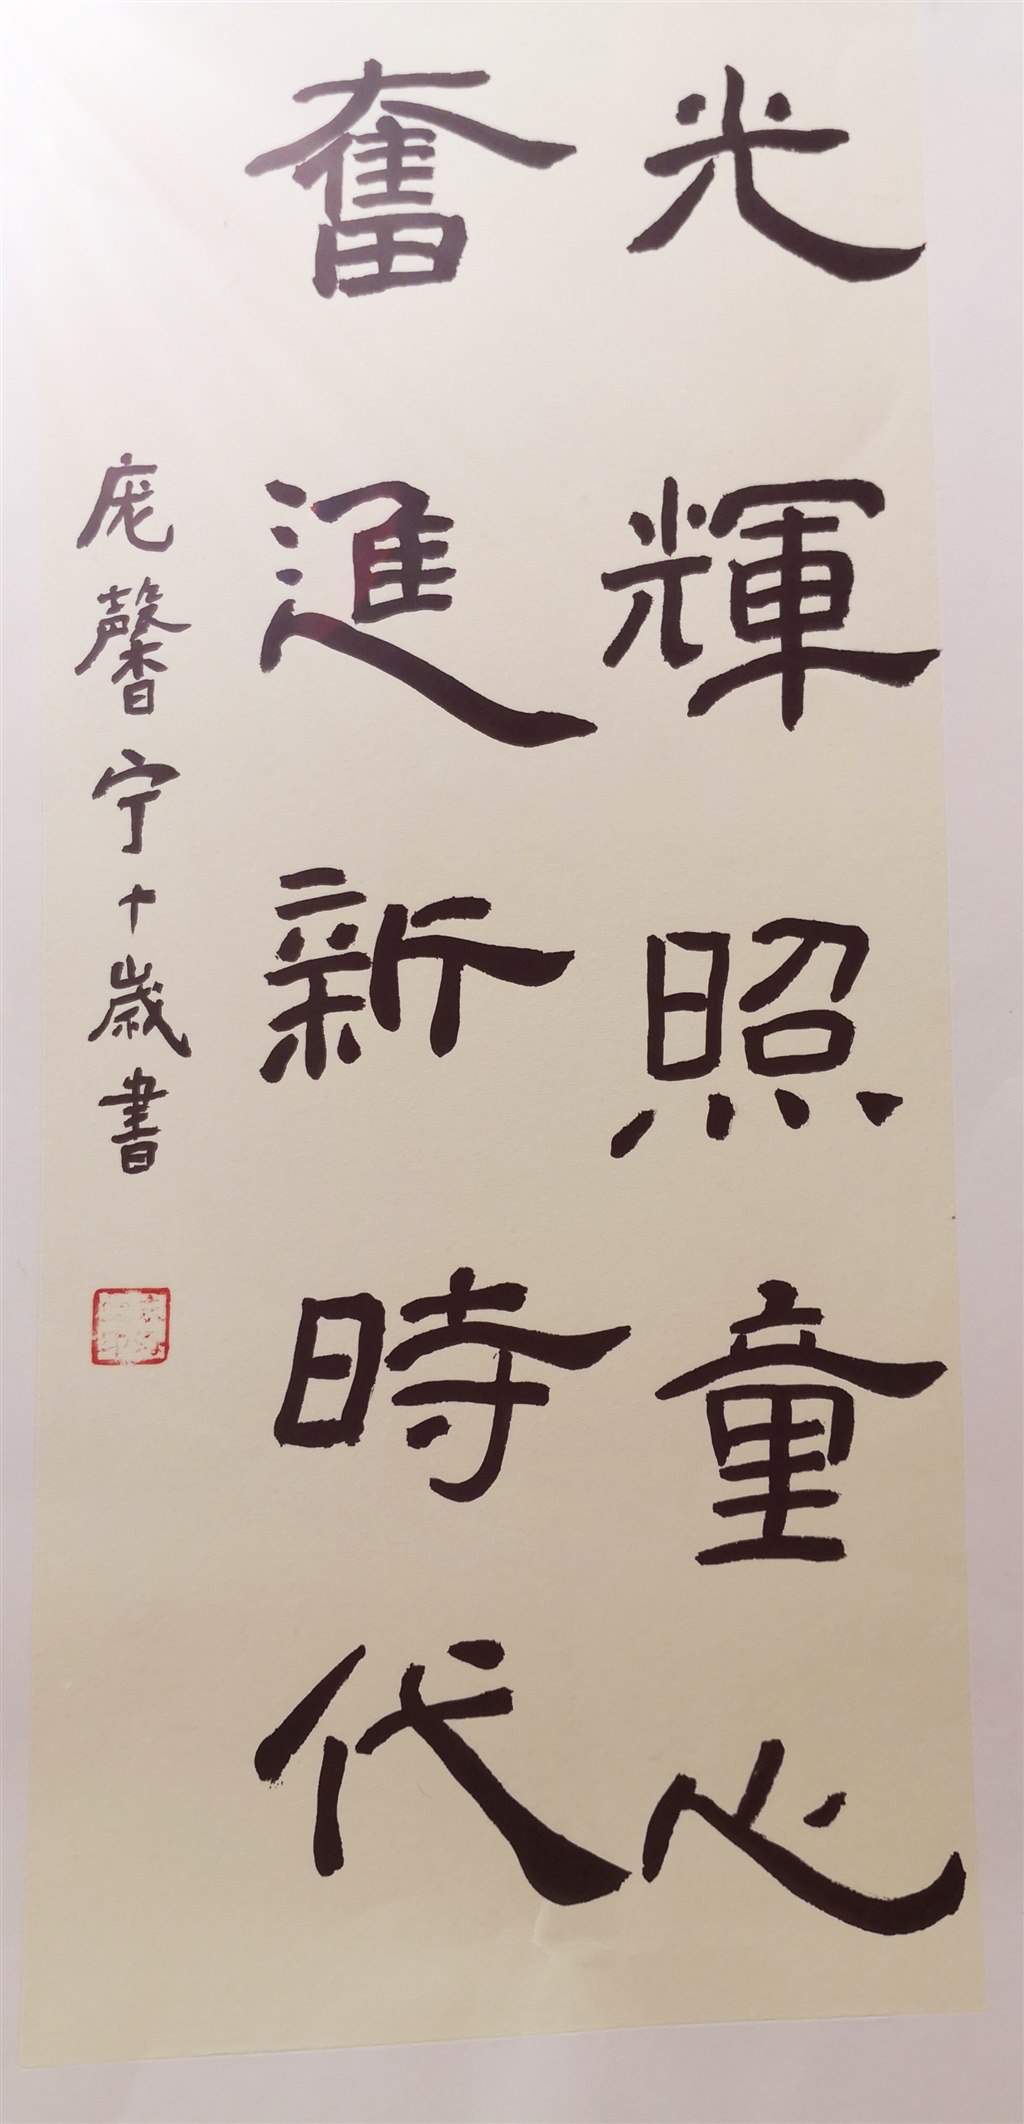 光輝照童心
奮進新時代
庞馨宁十歲書